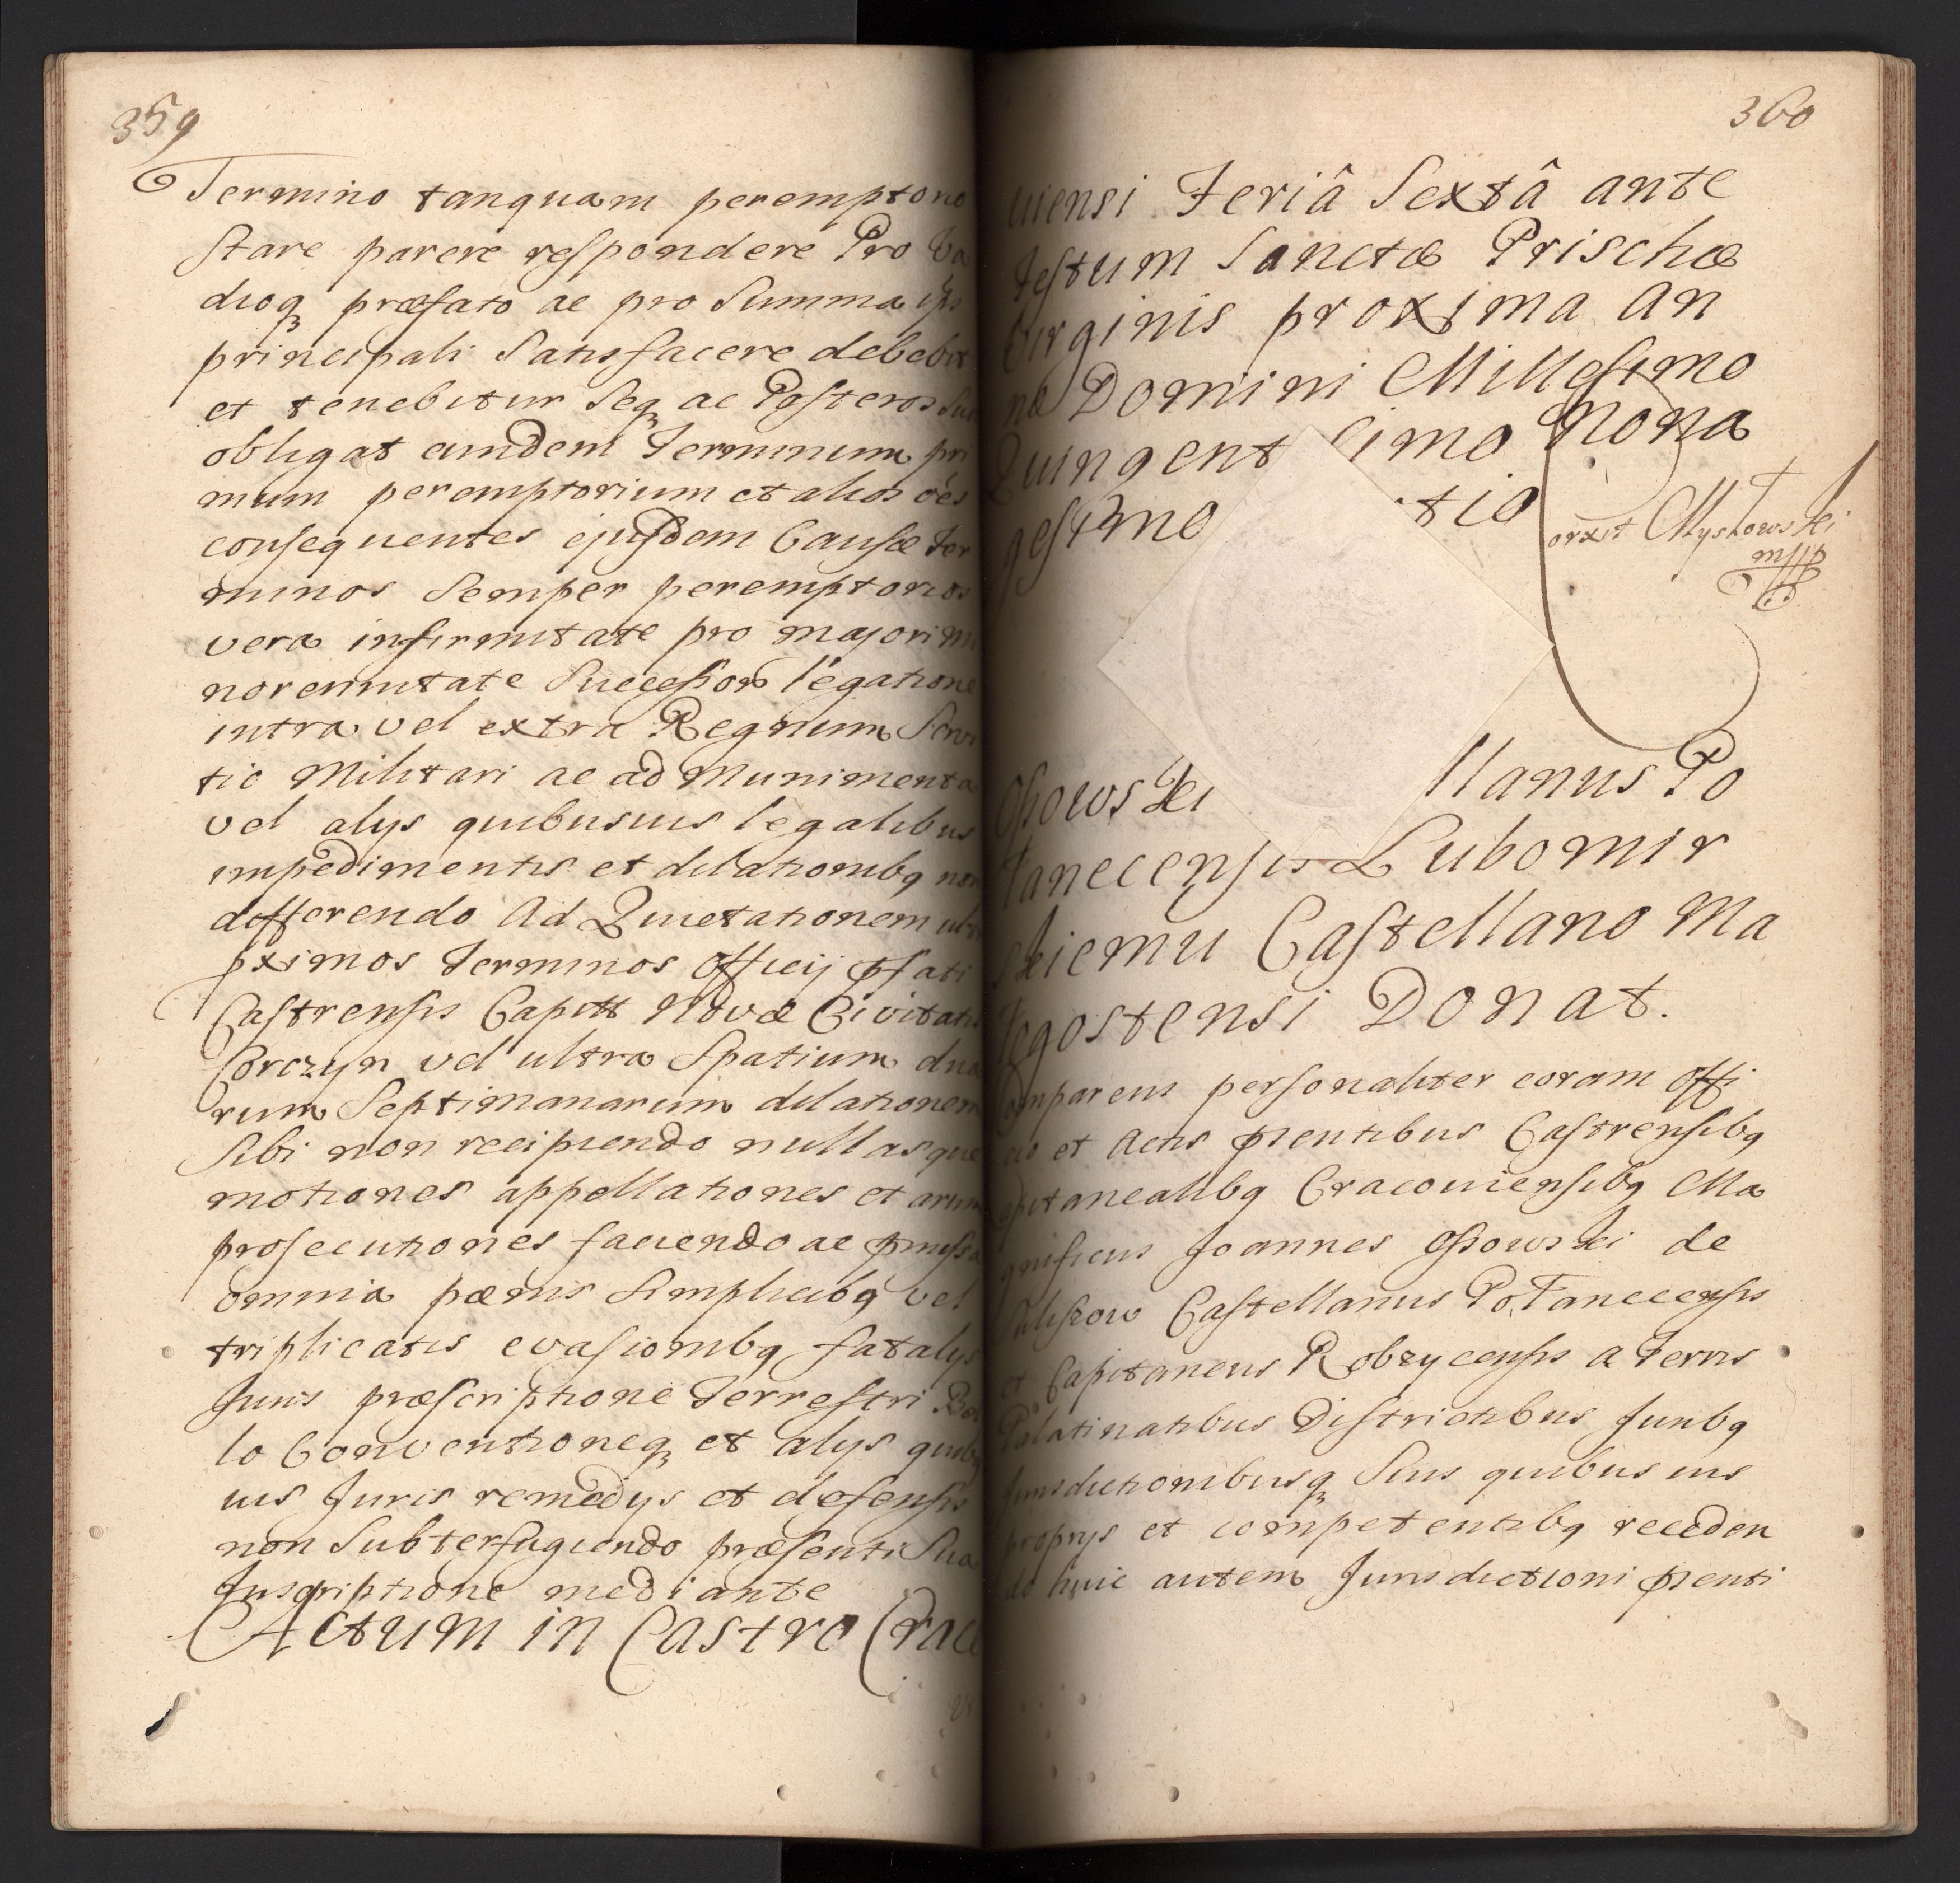 359
Termino tanquam peremptorio
Stare parere respondere Pro Va
dioq præfato ac pro Summa ips
principali Satisfacere debebit
et tenebitur Seq ac Posteros Suos
obligat eundem Terminum pri
mum peremptorium et alios oes
consequentes ejusdem Causæ Ter
minos Semper peremptorios
vera infirmitate pro majori mi
norennitate Successor legatione
intra vel extra Regnum Servi
tio Militari ac ad Munimenta
vel alys quibusuis legalibus
impedimentis et dilationibq non
differendo Ad Quietationem
pximos Terminos Officij pfati
Castrensis Capitt Novæ Civitatis
Corczyn vel ultra Spatium dua
rum Septimanarum dilationem
Sibi non recipiendo nullasque
motiones appellationes et arum
prosecutiones faciendo ac pmissa
omnia pœnis Simplicibq vel
triplicatis evasionibq fatalys
Juris præscriptione Terrestri
lo Conventioneq et alys quib
uis Juris remedys et defensis
non Subterfugiendo præsenti Sua
Inscriptione mediante
Actum in Castro Craco
360
uiensi Feriâ Sextâ ante
Festum Sanctæ Prischæ
Virginis proxima An
no Domini Millesimo
Quingent simo Nona
gesimo tio
orxit Myszkowski
mpp
Ossowski llanus Po
łanecensis Lubomir
skiemu Castellano Ma
łogostensi Donat.
Comparens personaliter coram Offi
cio et Actis psentibus Castrensibq
Capitanealibq Cracouiensibq Ma
gnificus Joannes Ossowski de
Baliszow Castellanus Połanecensis
et Capitaneus Robzycensis a Terris
Palatinatibus Districtibus Juribq
Jurisdictionibusq Suis quibus uis
proprys et competentibq receden
do huic autem Jurisdictioni psenti